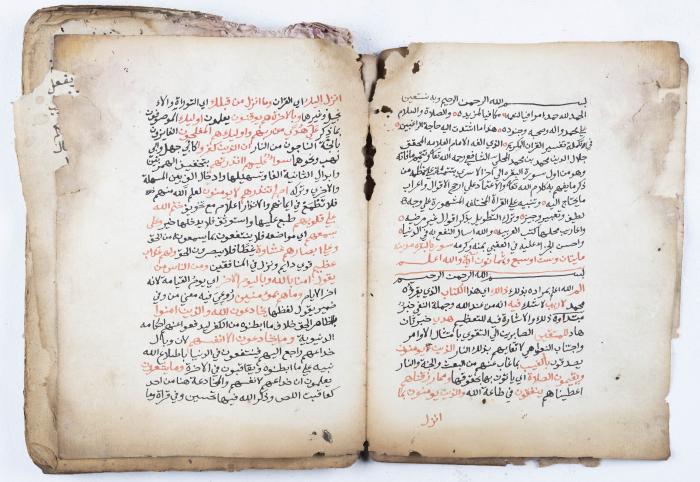 بسم الله الرحمن الرحيم وبه نستعين
الحمد لله حمدا موافيا لنعمه مكافيا لمزيده والصلاة والسلام
على محمد واله وصحبه وجنوده هذا ما اشتدت اليه حاجة الراغبين
في تكملة تفسير القران الكريم الذي الفه الامام العلامه المحقق
جلال الدين محمد بن احمد المحلي الشافعي رحمه الله وتتميم ما فاته
وهو من اول سورة البقره الى اخر الاسرى بتتمة على نمطه من
ذكر ما يفهم به كلام الله تعالى والاعتماد على ارجح الاقوال واعراب
ما يحتاج اليه وتنبيه على القراة المختلفه المشهورة على وجه
لطيف وتعبير وجيز وترك التطويل بذكر اقوال غير مرضيه
واعاريب محلها كتب العربيه والله اسال النفع به في الدنيا
واحسن الجزا عليه في العقبى بمنه وكرمه سورة البقره مدنيه
مايتان وست او سبع وثمانون ايه والله اعلم
بسم الله الرحمن الرحيم
الم الله اعلم بمراده بذلك ذلك اي هذا الكتاب الذي يقرؤه
محمد لا ريب لا شك فيه انه من عند الله وجملة النفي خبر
مبتداه ذلك والاشارة فيه للتعظيم هدى خبر ثان
هاد للمتقين الصايرين الى التقوى بامتثال الاوامر
واجتناب النواهي لاتقايهم بذلك النار الذين يومنون
يصدقون بالغيب بما غاب عنهم من البعث والجنة والنار
ويقيمون الصلاة اي ياتون بها بحقوقها ومما رزقناهم
اعطيناهم ينفقون في طاعة الله والذين يومنون بما
انزل
انزل اليك اي القران وما انزل من قبلك اي التوراة والا
نجيل وغيرها وبالاخرة هم يوقنون يعلمون اوليك الموصوفون
بما ذكر على هدى من ربهم واوليك هم المفلحون الفايزون
بالجنة الناجون من النار ان الذين كفروا كابي جهل وابي
لهب ونحوهما سوا عليهم اانذرتهم بتحقيق الهمزتين
وابدال الثانية الفا وتسهيلها وادخال الف بين المسهلة
والاخرى وتركه ام لم تنذرهم لا يومنون لعلم الله منهم
فلا تطمع في ايمانهم والانذار اعلام مع تخويف ختم الله
على قلوبهم طبع عليها واستوثق فلا يدخلها خير وعلى
سمعهم اي مواضعه فلا ينتفعون بما يسمعونه من الحق
وعلى ابصارهم غشاوة غطا فلا يبصرون الحق ولهم عذاب
عظيم قوي دايم ونزل في المنافقين ومن الناس من
يقول امنا بالله وباليوم الاخر اي يوم القيامة لانه
اخر الايام وما هم بمومنين روعي فيه معنى من وفي
ضمير يقول لفظها يخادعون الله والذين امنوا
باظهار الحق خلاف ما ابطنوه من الكفر ليدفعوا عنهم احكامه
الدنيوية وما يخادعون الا انفسهم لان وبال
خداعهم راجع اليهم فيفتضحون في الدنيا باطلاع الله
نبيه على ما ابطنوه ويعاقبون في الاخرة وما يشعرون
يعلمون ان خداعهم لانفسهم والمخادعة هنا من واحد
كعاقبت اللص وذكر الله فيها تحسين وفي قراة وما
يفعل